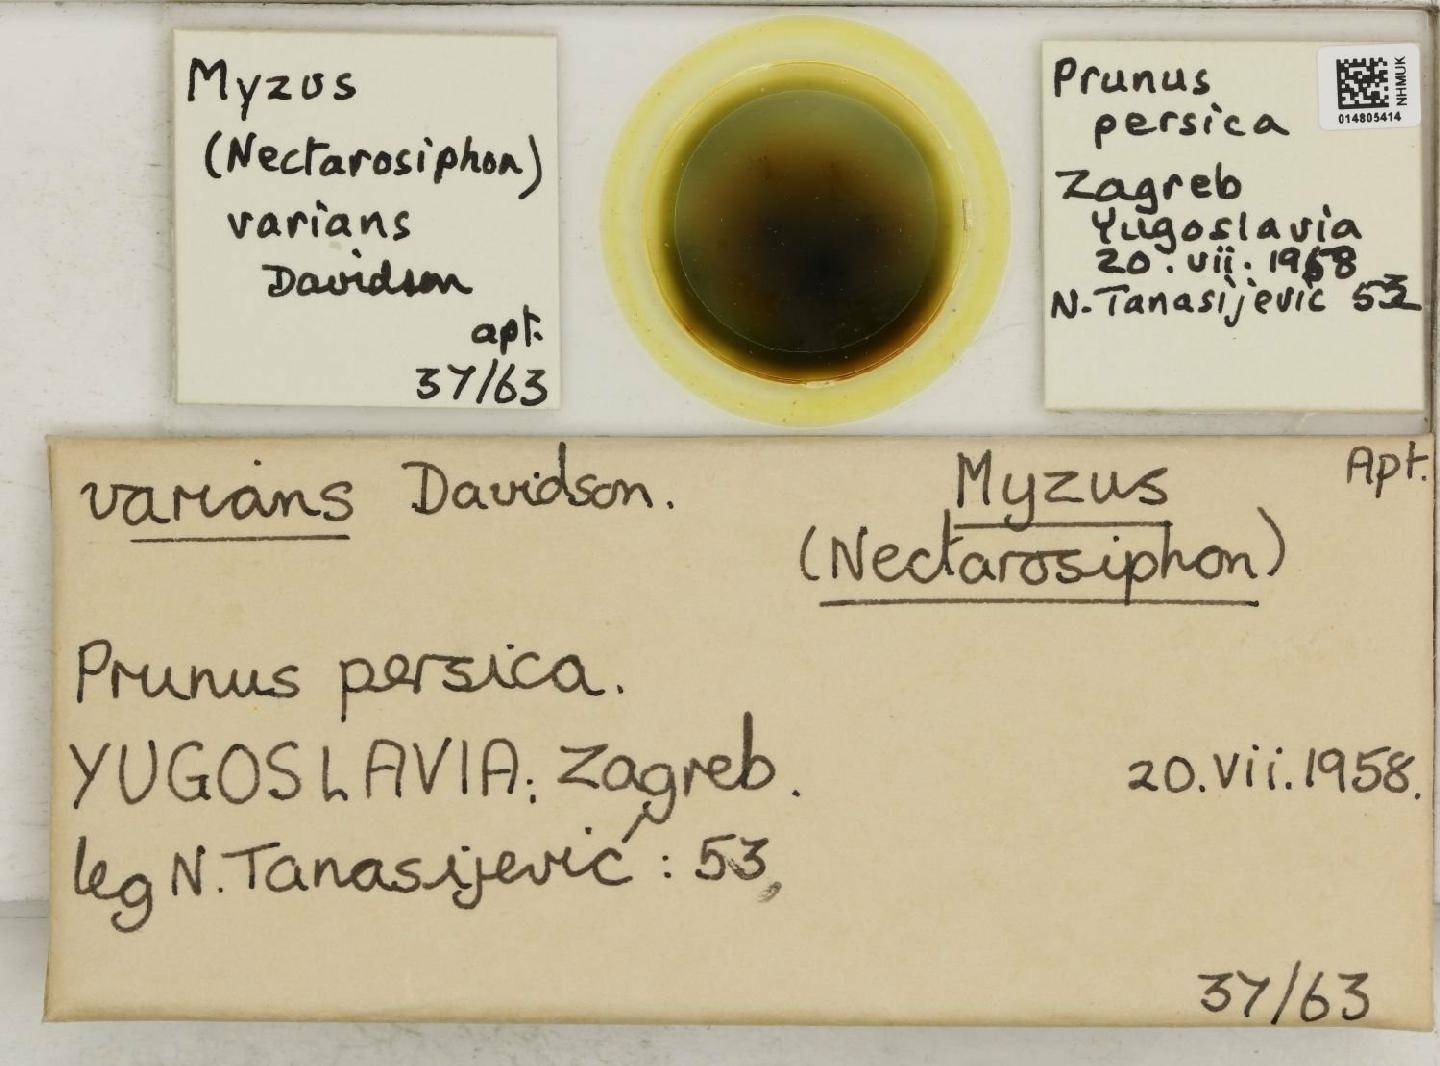 Myzus
(Nectarosiphon)
varians
Davidson
apt.
37/63
Prunus
persica
Zagreb
Yugoslavia
20.vii.1958
N.Tanasijević 53
NHMUK
014805414
varians Davidson.
Myzus
(Nectarosiphon)
Apt.
Prunus persica.
YUGOSLAVIA: Zagreb.
20.vii.1958.
leg N.Tanasijević: 53,
37/63